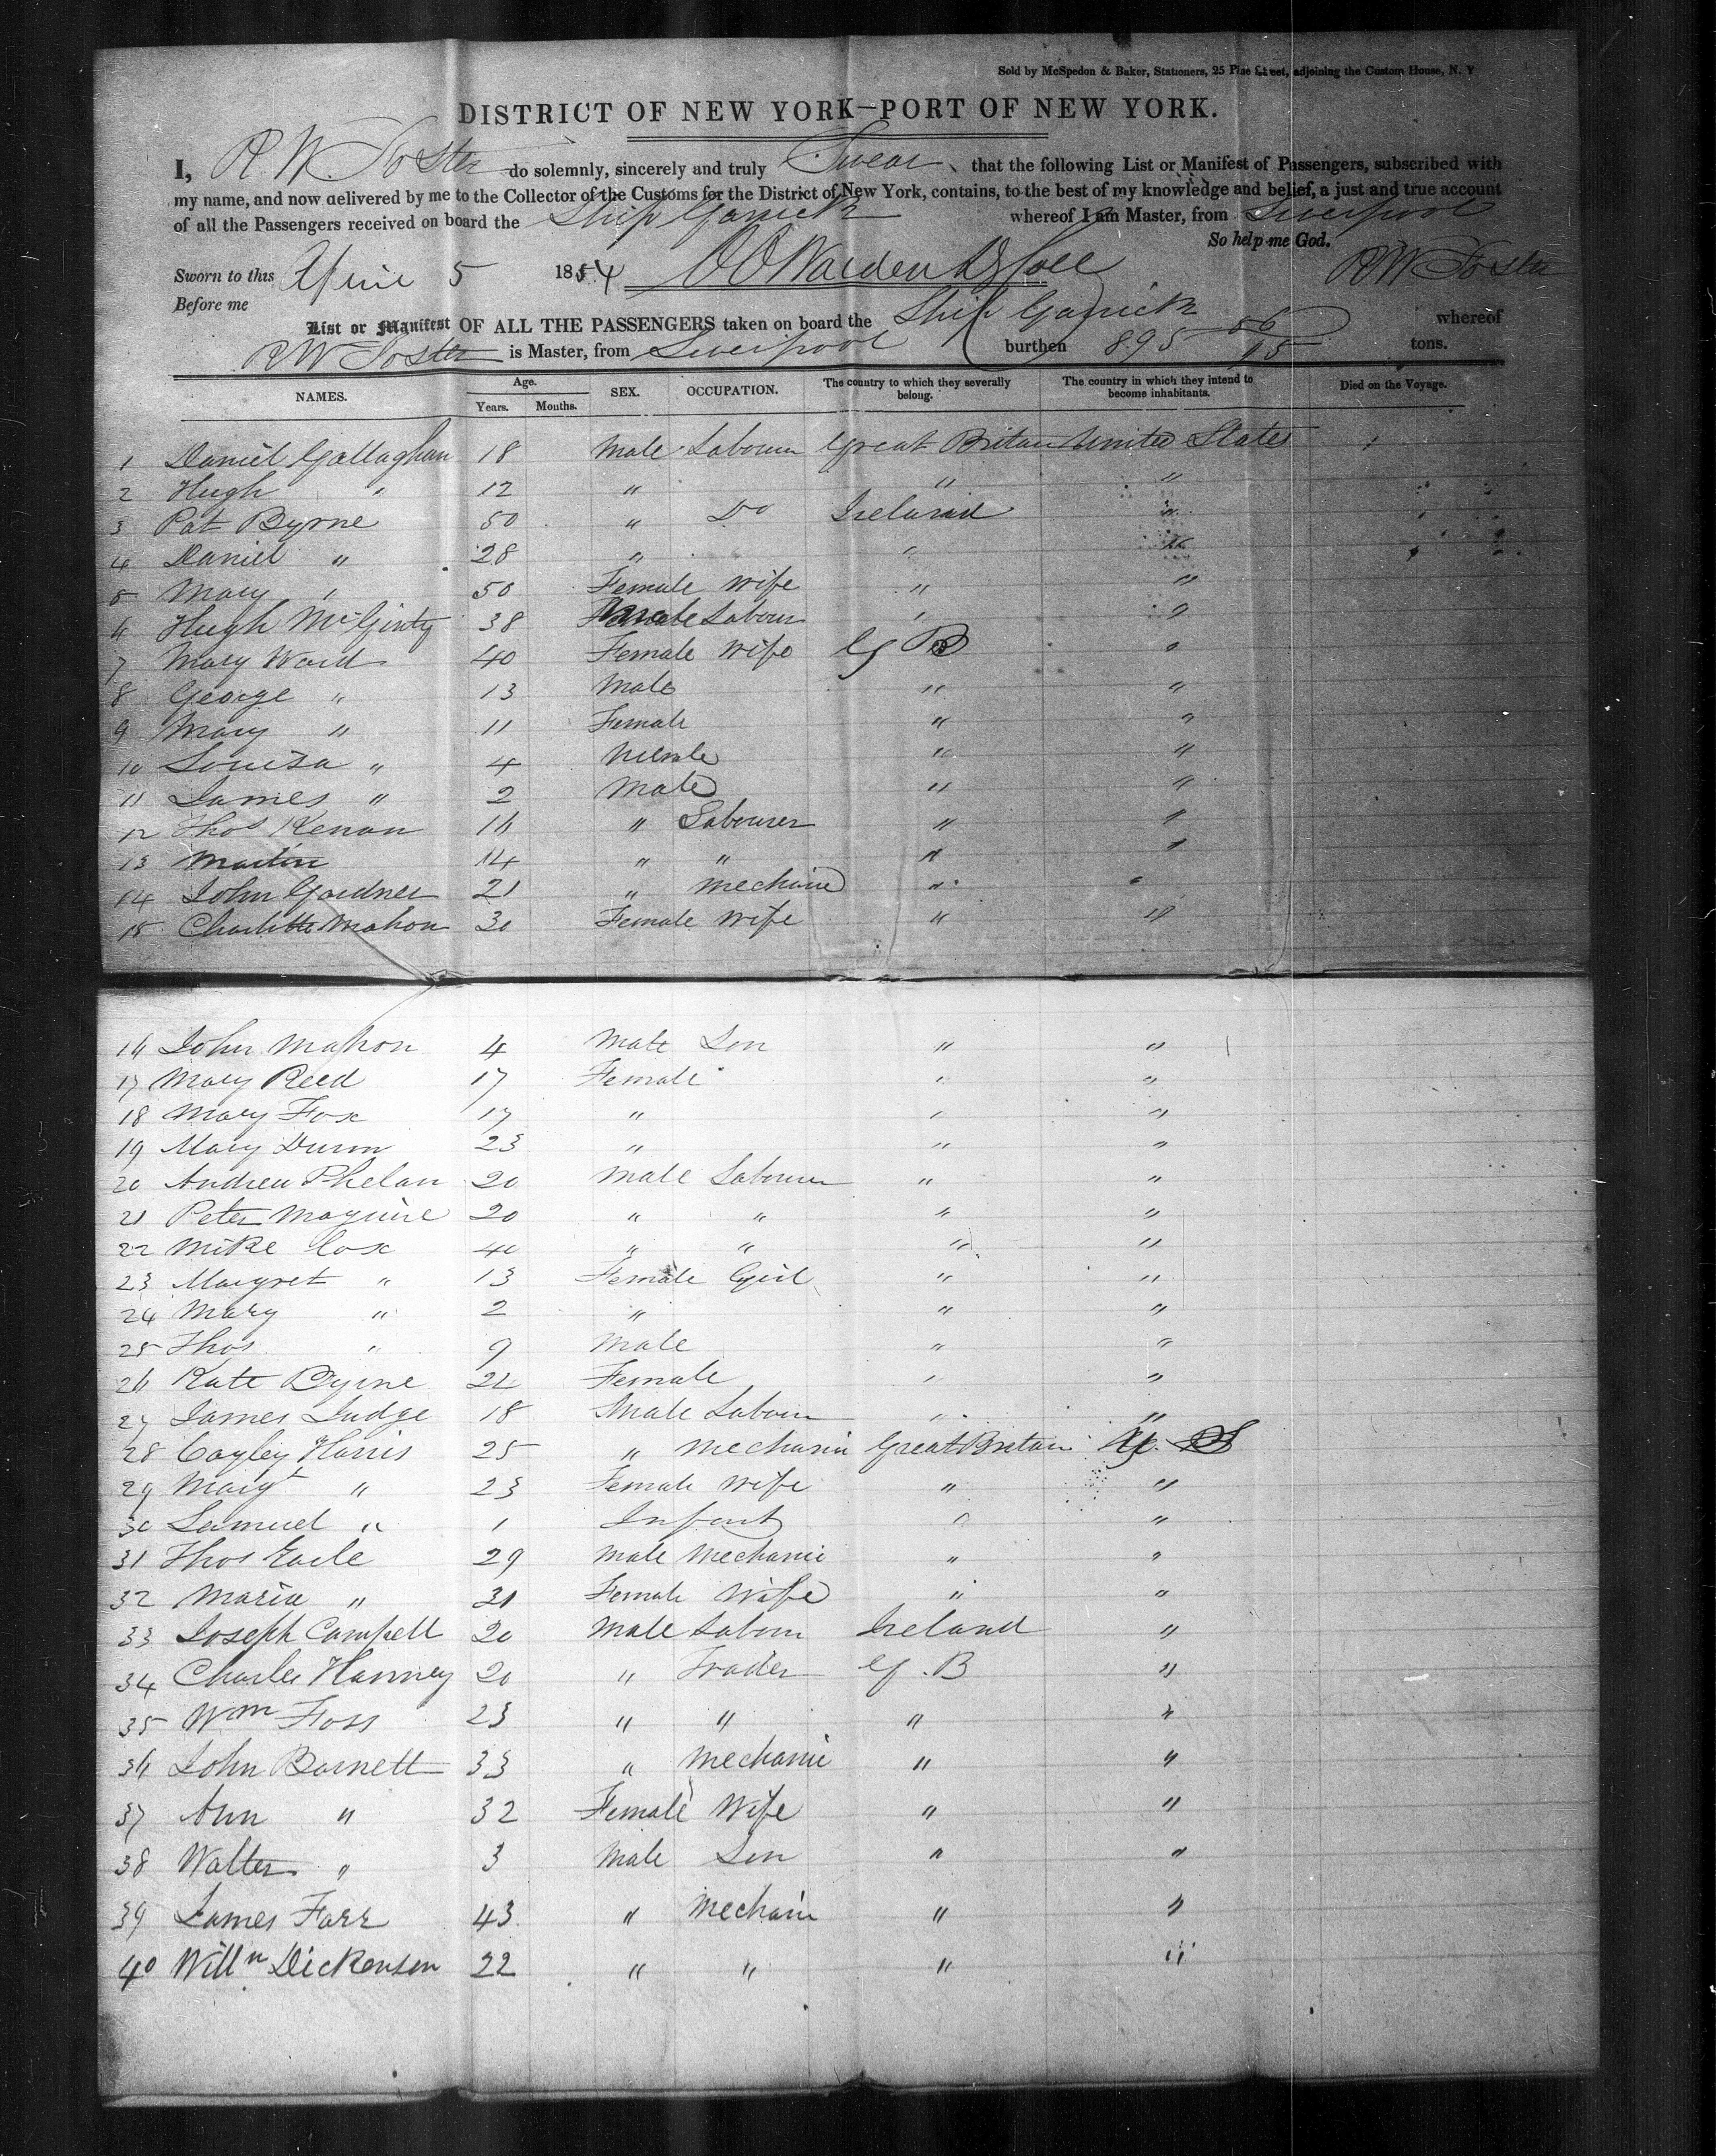 Sold by McSpedon & Baker, Stationers, 25 Pine Street, adjoining the Custom House, N. Y
DISTRICT OF NEW YORK—PORT OF NEW YORK.
I, R W Foster do solemnly, sincerely and truly Swear that the following List or Manifest of Passengers, subscribed with
my name, and now delivered by me to the Collector of the Customs for the District of New York, contains, to the best of my knowledge and belief, a just and true account
of all the Passengers received on board the Ship Garrick whereof I am Master, from Liverpool
So help me God.
Sworn to this April 5 1854 R W Foster
Before me
List or Manifest OF ALL THE PASSENGERS taken on board the Ship Garrick whereof
R W Foster is Master, from Liverpool burthen 895 tons.
NAMES. Age. Years. Months. SEX. OCCUPATION. The country to which they severally belong. The country in which they intend to become inhabitants. Died on the Voyage.
1 Daniel Gallaghan 18 Male Labourer Great Britan United States
2 Hugh " 12 " " "
3 Pat Byrne 50 " Do Ireland "
4 Daniel " 28 " " "
5 Mary " 50 Female Wife " "
6 Hugh McGinty 38 Male Labourer " "
7 Mary Ward 40 Female Wife G B "
8 George " 13 Male " "
9 Mary " 11 Female " "
10 Louisa " 4 " "
11 James " 2 Male " "
12 Thos Kenan 16 " Labourer " "
13 Martin 14 " " " "
14 John Gardner 21 " Mechanic " "
15 Charlotte Mahon 30 Female Wife " "
16 John Mahon 4 Male Son " "
17 Mary Reed 17 Female " "
18 Mary Fox 17 " " "
19 Mary Dunn 23 " " "
20 Andrew Phelan 20 Male Labourer " "
21 Peter Maguire 20 " " " "
22 Mike Cox 40 " " " "
23 Margret " 13 Female Girl " "
24 Mary " 2 " " "
25 Thos " 9 Male " "
26 Kate Byrne 22 Female " "
27 James Judge 18 Male Labour " "
28 Cayley Harris 25 " Mechanic Great Britan U. S
29 Margt " 23 Female Wife " "
30 Samuel " 1 Infant " "
31 Thos Earle 29 Male Mechanic " "
32 Maria " 31 Female Wife " "
33 Joseph Campell 20 Male Labour Ireland "
34 Charles Hanney 20 " Trader G. B "
35 Wm Foss 23 " " " "
36 John Barnett 33 " Mechanic " "
37 Ann " 32 Female Wife " "
38 Walter " 3 Male Son " "
39 James Farr 43 " Mechanic " "
40 Willm Dickenson 22 " " " "